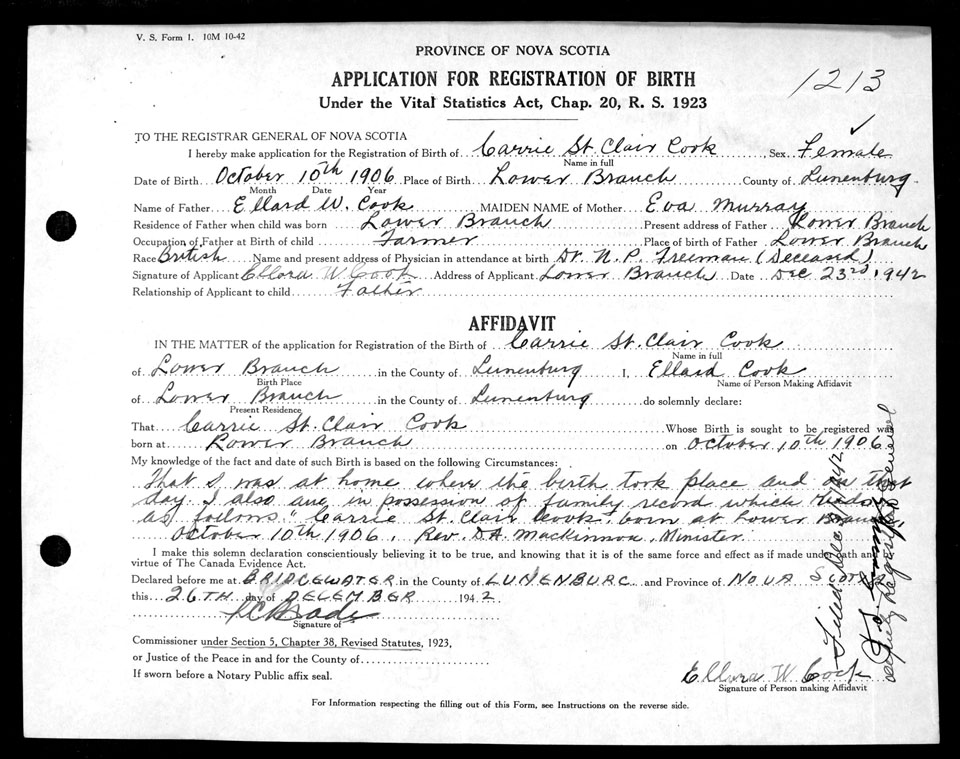 V. S. Form 1. 10M 10-42
PROVINCE OF NOVA SCOTIA
APPLICATION FOR REGISTRATION OF BIRTH
1213
Under the Vital Statistics Act, Chap. 20, R. S. 1923
TO THE REGISTRAR GENERAL OF NOVA SCOTIA
I hereby make application for the Registration of Birth of Carrie St. Clair Cook, Sex Female
Name in full
Date of Birth October 10th 1906 Place of Birth Lower Branch County of Lunenburg
Month Date Year
Name of Father Ellard W. Cook MAIDEN NAME of Mother Eva Murray
Residence of Father when child was born Lower Branch Present address of Father Lower Branch
Occupation of Father at Birth of child Farmer Place of birth of Father Lower Branch
Race British Name and present address of Physician in attendance at birth Dr. N. P. Freeman (Deceased)
Signature of Applicant Ellard W Cook Address of Applicant Lower Branch Date Dec 23rd, 1942
Relationship of Applicant to child Father
AFFIDAVIT
IN THE MATTER of the application for Registration of the Birth of Carrie St. Clair Cook
Name in full
of Lower Branch in the County of Lunenburg I, Ellard Cook
Birth Place Name of Person Making Affidavit
of Lower Branch in the County of Lunenburg do solemnly declare:
Present Residence
That Carrie St. Clair Cook Whose Birth is sought to be registered was
born at Lower Branch on October 10th 1906
My knowledge of the fact and date of such Birth is based on the following Circumstances:
That I was at home where the birth took place and on that
day. I also am in possession of family record which reads
as follows "Carrie St. Clair Cook, born at Lower Branch,
October 10th 1906. Rev. D.A. Mackinnon, Minister.
I make this solemn declaration conscientiously believing it to be true, and knowing that it is of the same force and effect as if made under oath and
virtue of The Canada Evidence Act.
Declared before me at BRIDGEWATER in the County of LUNENBURG and Province of NOVA SCOTIA
this 26TH day of DECEMBER 1942
Signature of
Commissioner under Section 5, Chapter 38, Revised Statutes, 1923,
or Justice of the Peace in and for the County of
If sworn before a Notary Public affix seal.
Ellard W Cook
Signature of Person making Affidavit
For Information respecting the filling out of this Form, see Instructions on the reverse side.
Filed Dec 31 1942
Deputy Registrar General